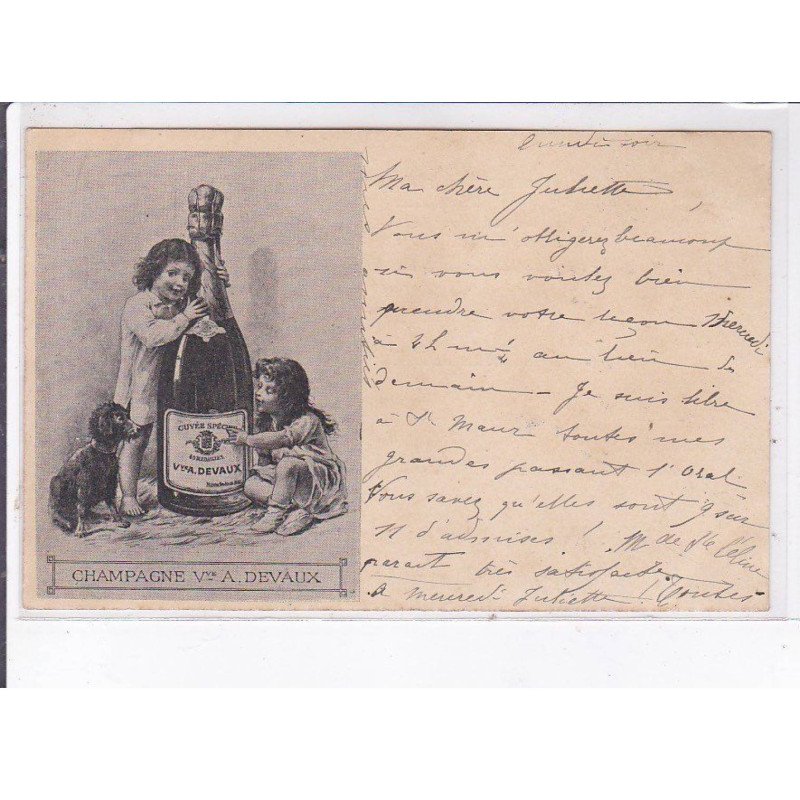 CUVÉE SPÉCIALE
Vve A. DEVAUX
CHAMPAGNE Vve A. DEVAUX
Lundi soir
Ma chère Juliette,
Vous m'obligerez beaucoup
si vous voulez bien
prendre votre leçon Mercredi
à 4h au lieu de
demain - Je suis libre
à St Maur toutes mes
grandes passant l'oral
Vous savez qu'elles sont 9 sur
11 d'admises ! M de Ste Céline
parait très satisfaite.
à mercredi Juliette ! Toutes